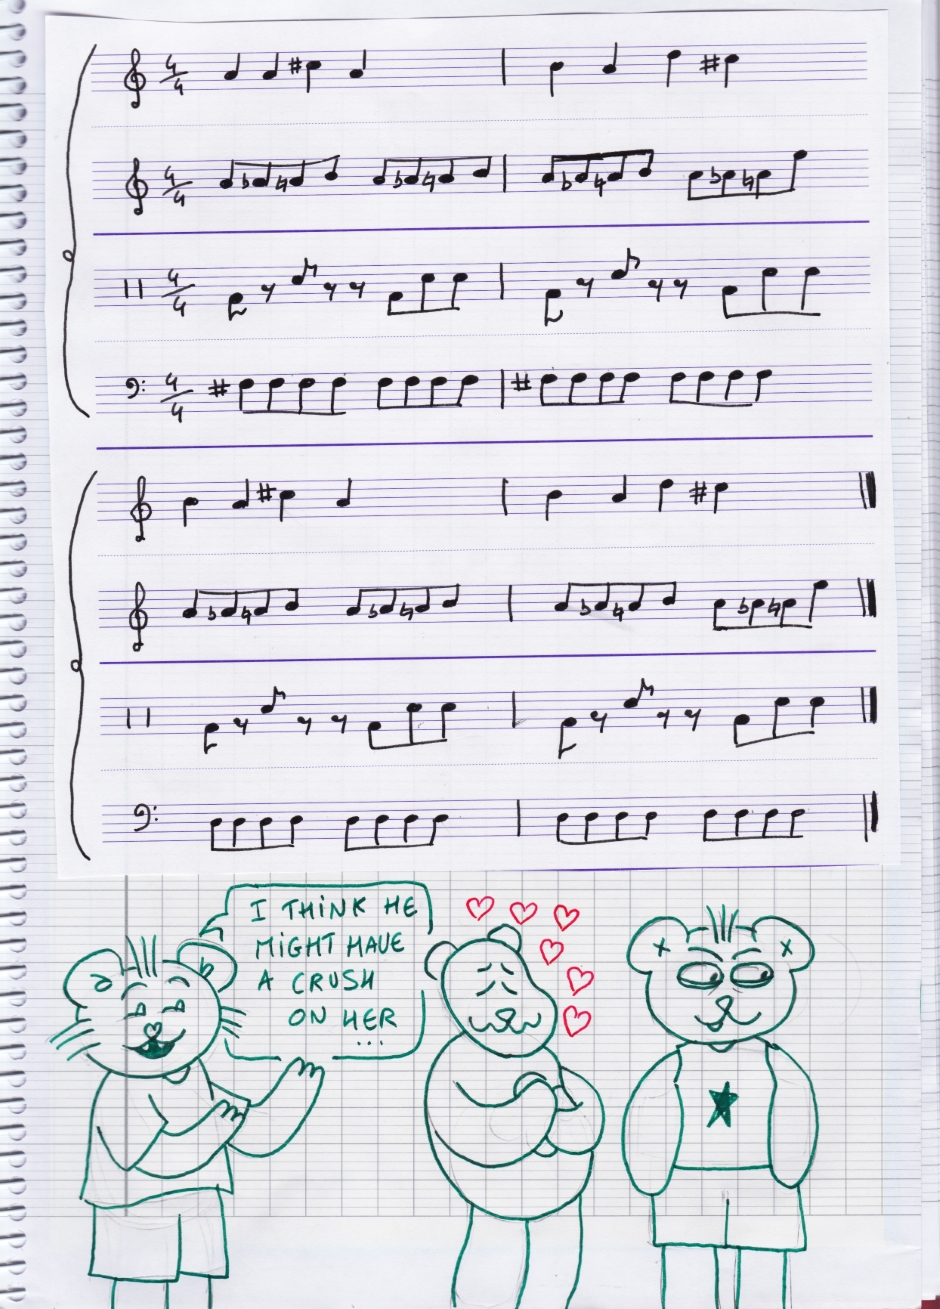 4/4
4/4
4/4
4/4
I THiNK HE
MiGHT HAVE
A CRUSH
ON HER
...